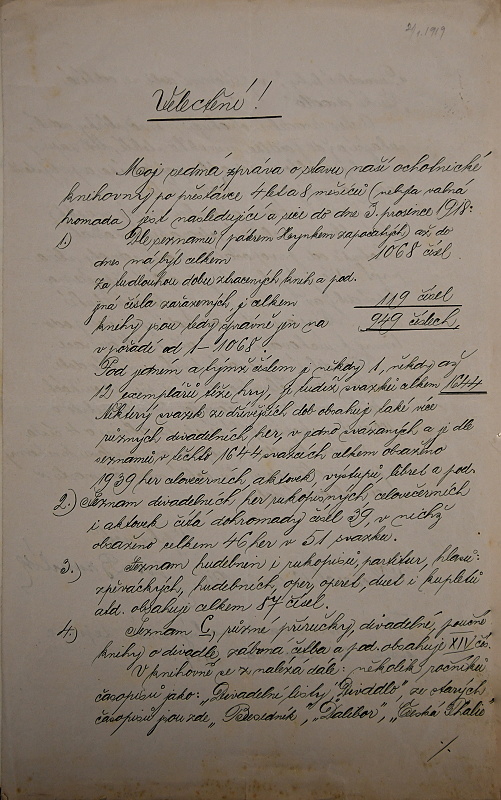 1919
Velectění!
Moje sedmá zpráva o stavu naší ochotnické
knihovny po přestávce 4 let a 8 měsíců (nebyla valná
hromada) jest následující a sice do dne 3. prosince 1918:
1.) Dle seznamů (pátrem Heynkem započatých) až do
dnes má býti celkem 1068 čísel
za tu dlouhou dobu ztracených knih a pod
jiná čísla zařazených, je celkem 119 čísel
knihy jsou tedy správně jen na 949 číslech,
v pořádí od 1–1068
Pod jedném a týmž číslem je někdy 1, někdy až
12 exemplářů téže hry, je tudíž svazků celkem 1644
Některý svazek ze dřívějších dob obsahuje také více
různých divadelních her, v jedno svázaných a je dle
seznamů v těchto 1644 svazcích celkem obsaženo
1939 her celovečerních, aktovek, výstupů, libret a pod.
2.) Seznam divadelních her rukopisných celovečerních
i aktovek čítá dohromady čísel 39, v nichž
obsaženo celkem 46 her v 51 svazku.
3.) Seznam hudebnin i rukopisů, partitur, hlasů
zpěváckých, hudebních, oper, operet, duet i kupletů
atd. obsahuje celkem 87 čísel.
4.) Seznam C, různé příručky, divadelní, poučné
knihy o divadle, zábavná četba a pod. obsahuje XIV čís.
V knihovně se nalézá dále: několik ročníků
časopisů jako: „Divadelní listy", „Divadlo" ze starých
časopisů jsou zde „Besedník", „Dalibor", „Česká Thalie"
./.